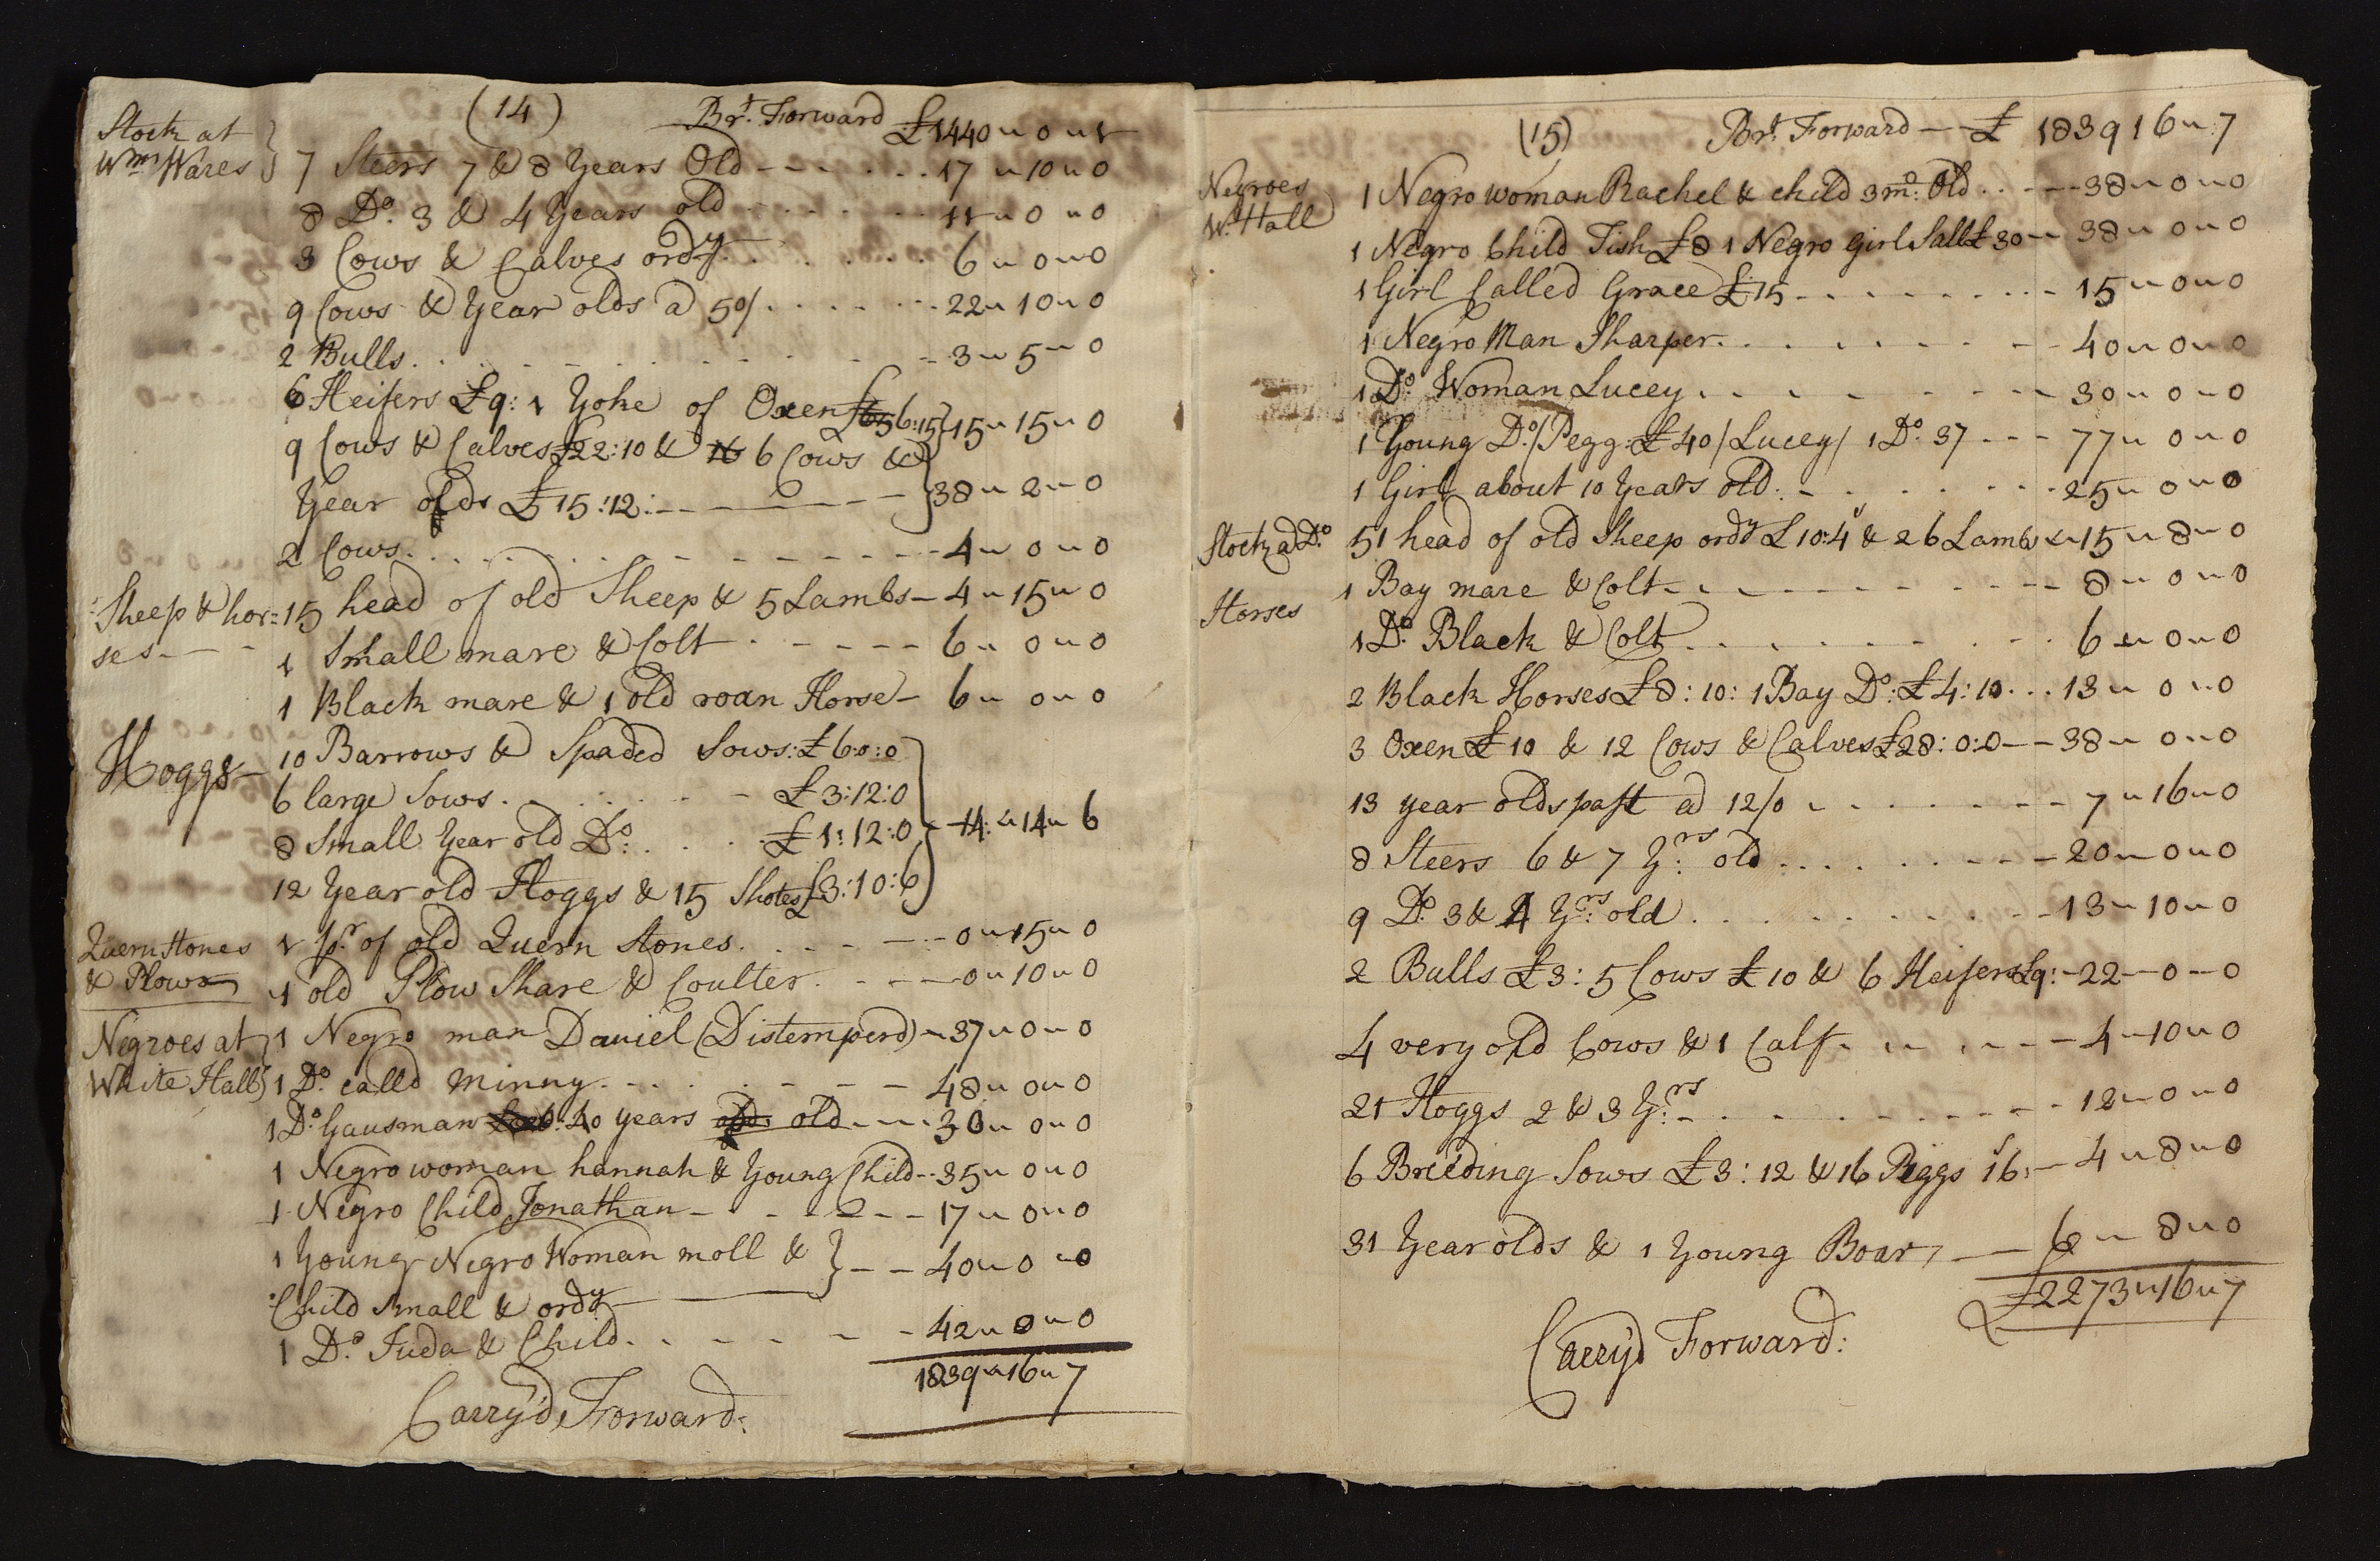 (14) Brt. Forward £1440 " 0 " 1
Stock at
Wm: Wares
7 Steers 7 & 8 Years Old - - - 17 " 10 " 0
8 Do. 3 & 4 Years old - - - 11 " 0 " 0
3 Cows & Calves ordy - - - 6 " 0 " 0
9 Cows & Year olds a 50/. - - - 22 " 10 " 0
2 Bulls. - - - 3 " 5 " 0
6 Heifers £9: 1 Yoke of Oxen £6:15 } 15 " 15 " 0
9 Cows & Calves £22:10 & 6 Cows &
Year olds £15:12: - - - } 38 " 2 " 0
2 Cows. - - - 4 " 0 " 0
Sheep & hor=
ses - -
15 head of old Sheep & 5 Lambs - 4 " 15 " 0
1 Small mare & Colt - - - 6 " 0 " 0
1 Black mare & 1 old roan Horse - 6 " 0 " 0
Hoggs -
10 Barrows & Spaded Sows: £6:0:0
6 large Sows. - - - £3:12:0
8 Small Year old Do: - - - £1:12:0 } 14: " 14 " 6
12 Year old Hoggs & 15 Shotes £3:10:6
Quern Stones
& Plows
1 pr. of old Quern Stones. - - - 0 " 15 " 0
1 old Plow Share & Coulter. - - - 0 " 10 " 0
Negroes at
White Hall
1 Negro man Daniel (Distemperd) - 37 " 0 " 0
1 Do. calld Minny. - - - 48 " 0 " 0
1 Do. Gausman 40 years old - - - 30 " 0 " 0
1 Negro woman hannah & Young Child - - 35 " 0 " 0
1 Negro Child Jonathan - - - 17 " 0 " 0
1 Young Negro Woman moll & } - - 40 " 0 " 0
Child small & ordy
1 Do. Juda & Child. - - - 42 " 0 " 0
1839 " 16 " 7
Carry'd Forward:
(15) Brt Forward - - £ 1839 16 " 7
Negroes
W. Hall
1 Negro woman Rachel & child 3 mo: Old. - - - 38 " 0 " 0
1 Negro Child Tish £8 1 Negro girl Sall £30 - - 38 " 0 " 0
1 Girl Called Grace £15 - - - 15 " 0 " 0
1 Negro Man Sharper. - - - 40 " 0 " 0
1 Do. Woman Lucey. - - - 30 " 0 " 0
1 Young Do. / Pegg: £40 / Lucey / 1 Do. 37 - - - 77 " 0 " 0
1 Girl about 10 Years old. - - - 25 " 0 " 0
Stock a Do.
51 head of old Sheep ordy £10:4 & 26 Lambs - 15 " 8 " 0
Horses
1 Bay mare & Colt - - - 8 " 0 " 0
1 Do. Black & Colt - - - 6 " 0 " 0
2 Black Horses £8:10: 1 Bay Do: £4:10 - - - 13 " 0 " 0
3 Oxen £10 & 12 Cows & Calves £28:0:0 - - 38 " 0 " 0
13 year olds past a 12/0 - - - 7 " 16 " 0
8 Steers 6 & 7 Yrs: old - - - 20 " 0 " 0
9 Do. 3 & 4 Yrs: old - - - 13 " 10 " 0
2 Bulls £3: 5 Cows £10 & 6 Heifers £9: - 22 - 0 - 0
4 very old Cows & 1 Calf - - - 4 - 10 " 0
21 Hoggs 2 & 3 Yrs: - - - 12 " 0 " 0
6 Breeding Sows £3:12 & 16 Piggs 16s: - 4 " 8 " 0
31 Year olds & 1 Young Boar, - - 6 " 8 " 0
£2273 " 16 " 7
Carry'd Forward: